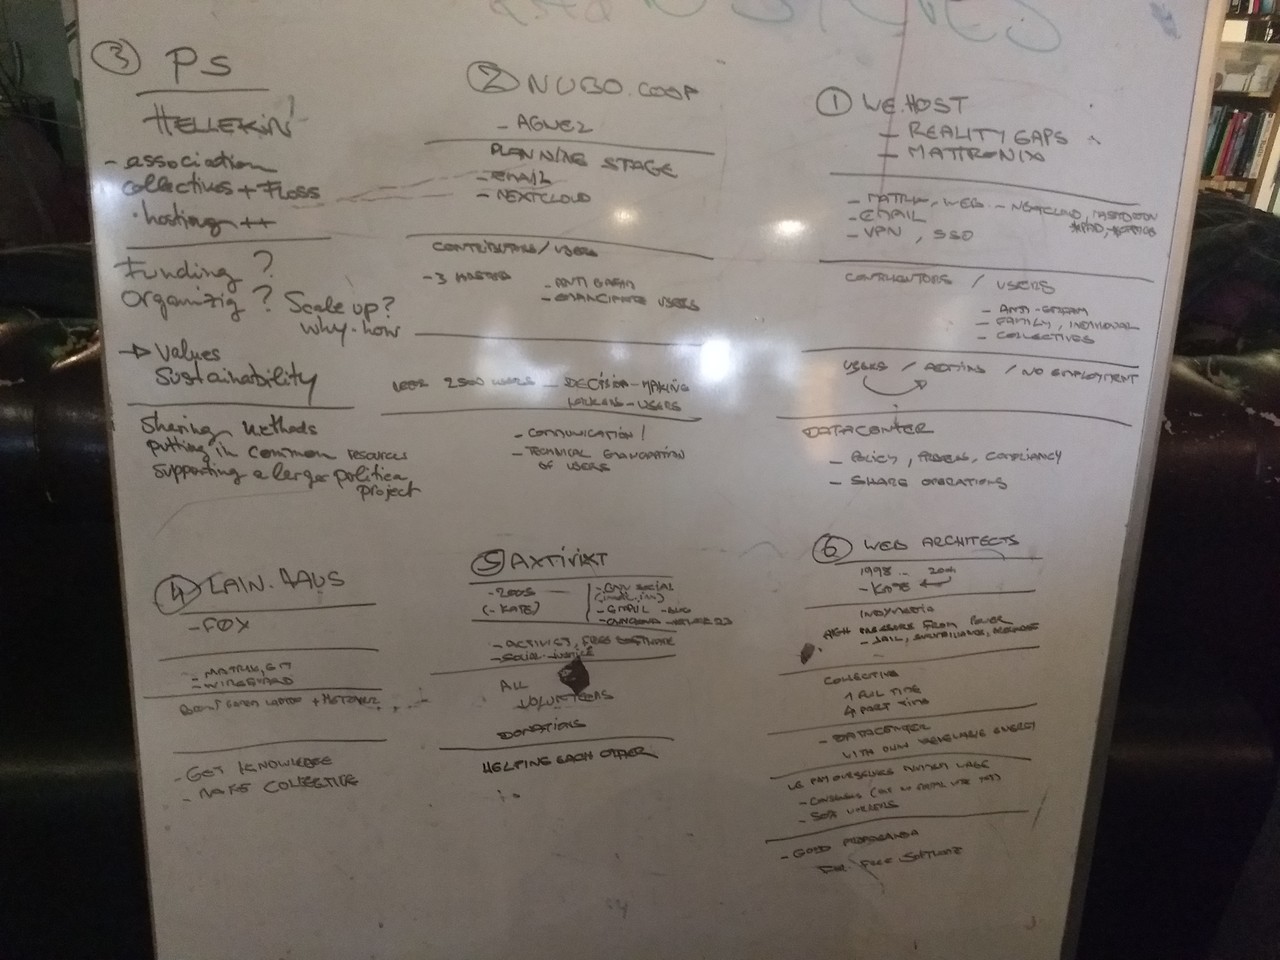 ① WE.HOST
- REALITY GAPS
- MATTRONIX
- MATRIX, WEB - NEXTCLOUD, MASTODON
- EMAIL
- VPN, SSO
CONTRIBUTORS / USERS
- FAMILY, INDIVIDUAL
- COLLECTIVES
USERS / ADMINS / NO EMPLOYMENT
DATACENTER
- POLICY, COMPLIANCY
- SHARE OPERATIONS
② NUBO.COOP
- AGNEZ
PLANNING STAGE
- EMAIL
- NEXTCLOUD
CONTRIBUTORS / USERS
- 3
- EMANCIPATE USERS
2500 USERS - DECISION-MAKING
- COMMUNICATION /
- TECHNICAL EMANCIPATION
OF USERS
③ PS
HELLEKIN
- association
collectives + FLOSS
· hosting ++
Funding ?
Organizig ? Scale up?
why-how
→ Values
Sustainability
Sharing methods
putting in common resources
Supporting a larger politica
project
④ LAIN.HAUS
- FOX
- MATRIX, GIT
- WIREGUARD
- GET KNOWLEDGE
- MAKE COLLECTIVE
⑤ AXTIVIXT
- 2005
(- KATE)
- GNU SOCIAL
- ACTIVIST, FREE SOFTWARE
- SOCIAL JUSTICE
ALL
VOLUNTEERS
DONATIONS
HELPING EACH OTHER
⑥ WEB ARCHITECTS
1998 ..
- KATE
INDYMEDIA
HIGH PRESSURE FROM POWER
- JAIL, SURVEILLANCE,
COLLECTIVE
1 FULL TIME
4 PART TIME
- DATACENTER
WITH OWN RENEWABLE ENERGY
WE PAY OURSELVES WAGE
- CONSENSUS
- GOOD PROPAGANDA
FOR FREE SOFTWARE